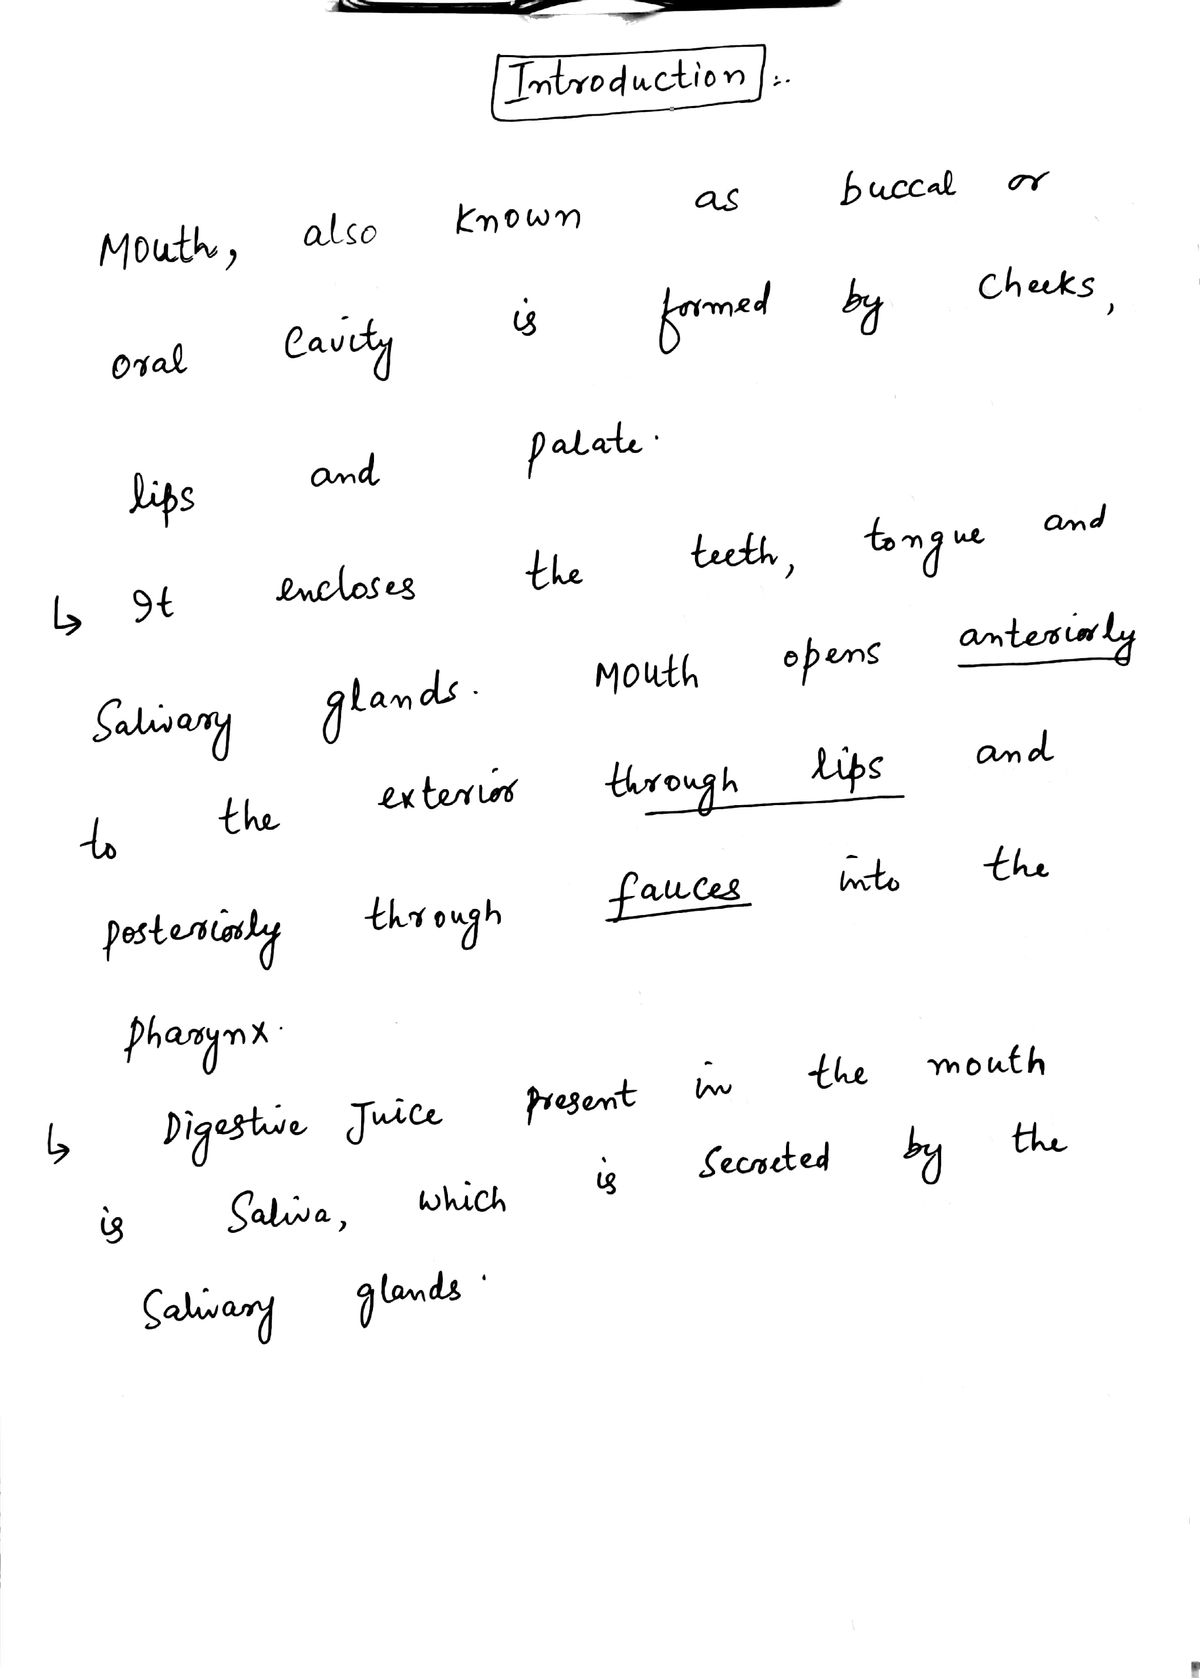 Introduction :-
Mouth, also known as buccal or
oral cavity is formed by cheeks,
lips and palate.
↳ It encloses the teeth, tongue and
Salivary glands. Mouth opens anteriorly
to the exterior through lips and
posteriorly through fauces into the
pharynx.
↳ Digestive Juice present in the mouth
is Saliva, which is secreted by the
Salivary glands.